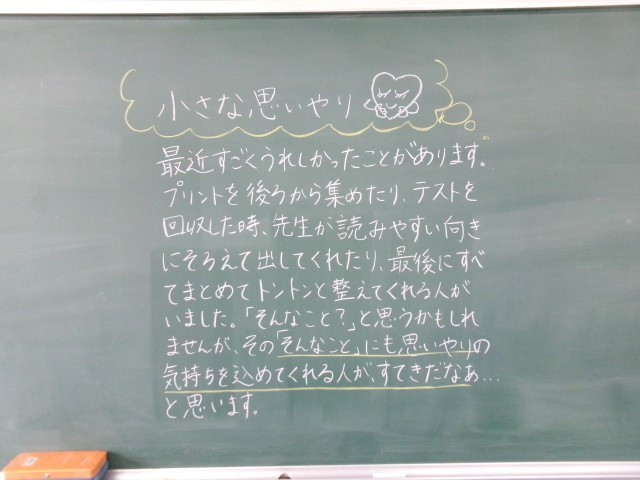 小さな思いやり
最近すごくうれしかったことがあります。
プリントを後ろから集めたり、テストを
回収した時、先生が読みやすい向き
にそろえて出してくれたり、最後にすべ
てまとめてトントンと整えてくれる人が
いました。「そんなこと?」と思うかもしれ
ませんが、その「そんなこと」にも思いやりの
気持ちを込めてくれる人が、すてきだなあ…
と思います。